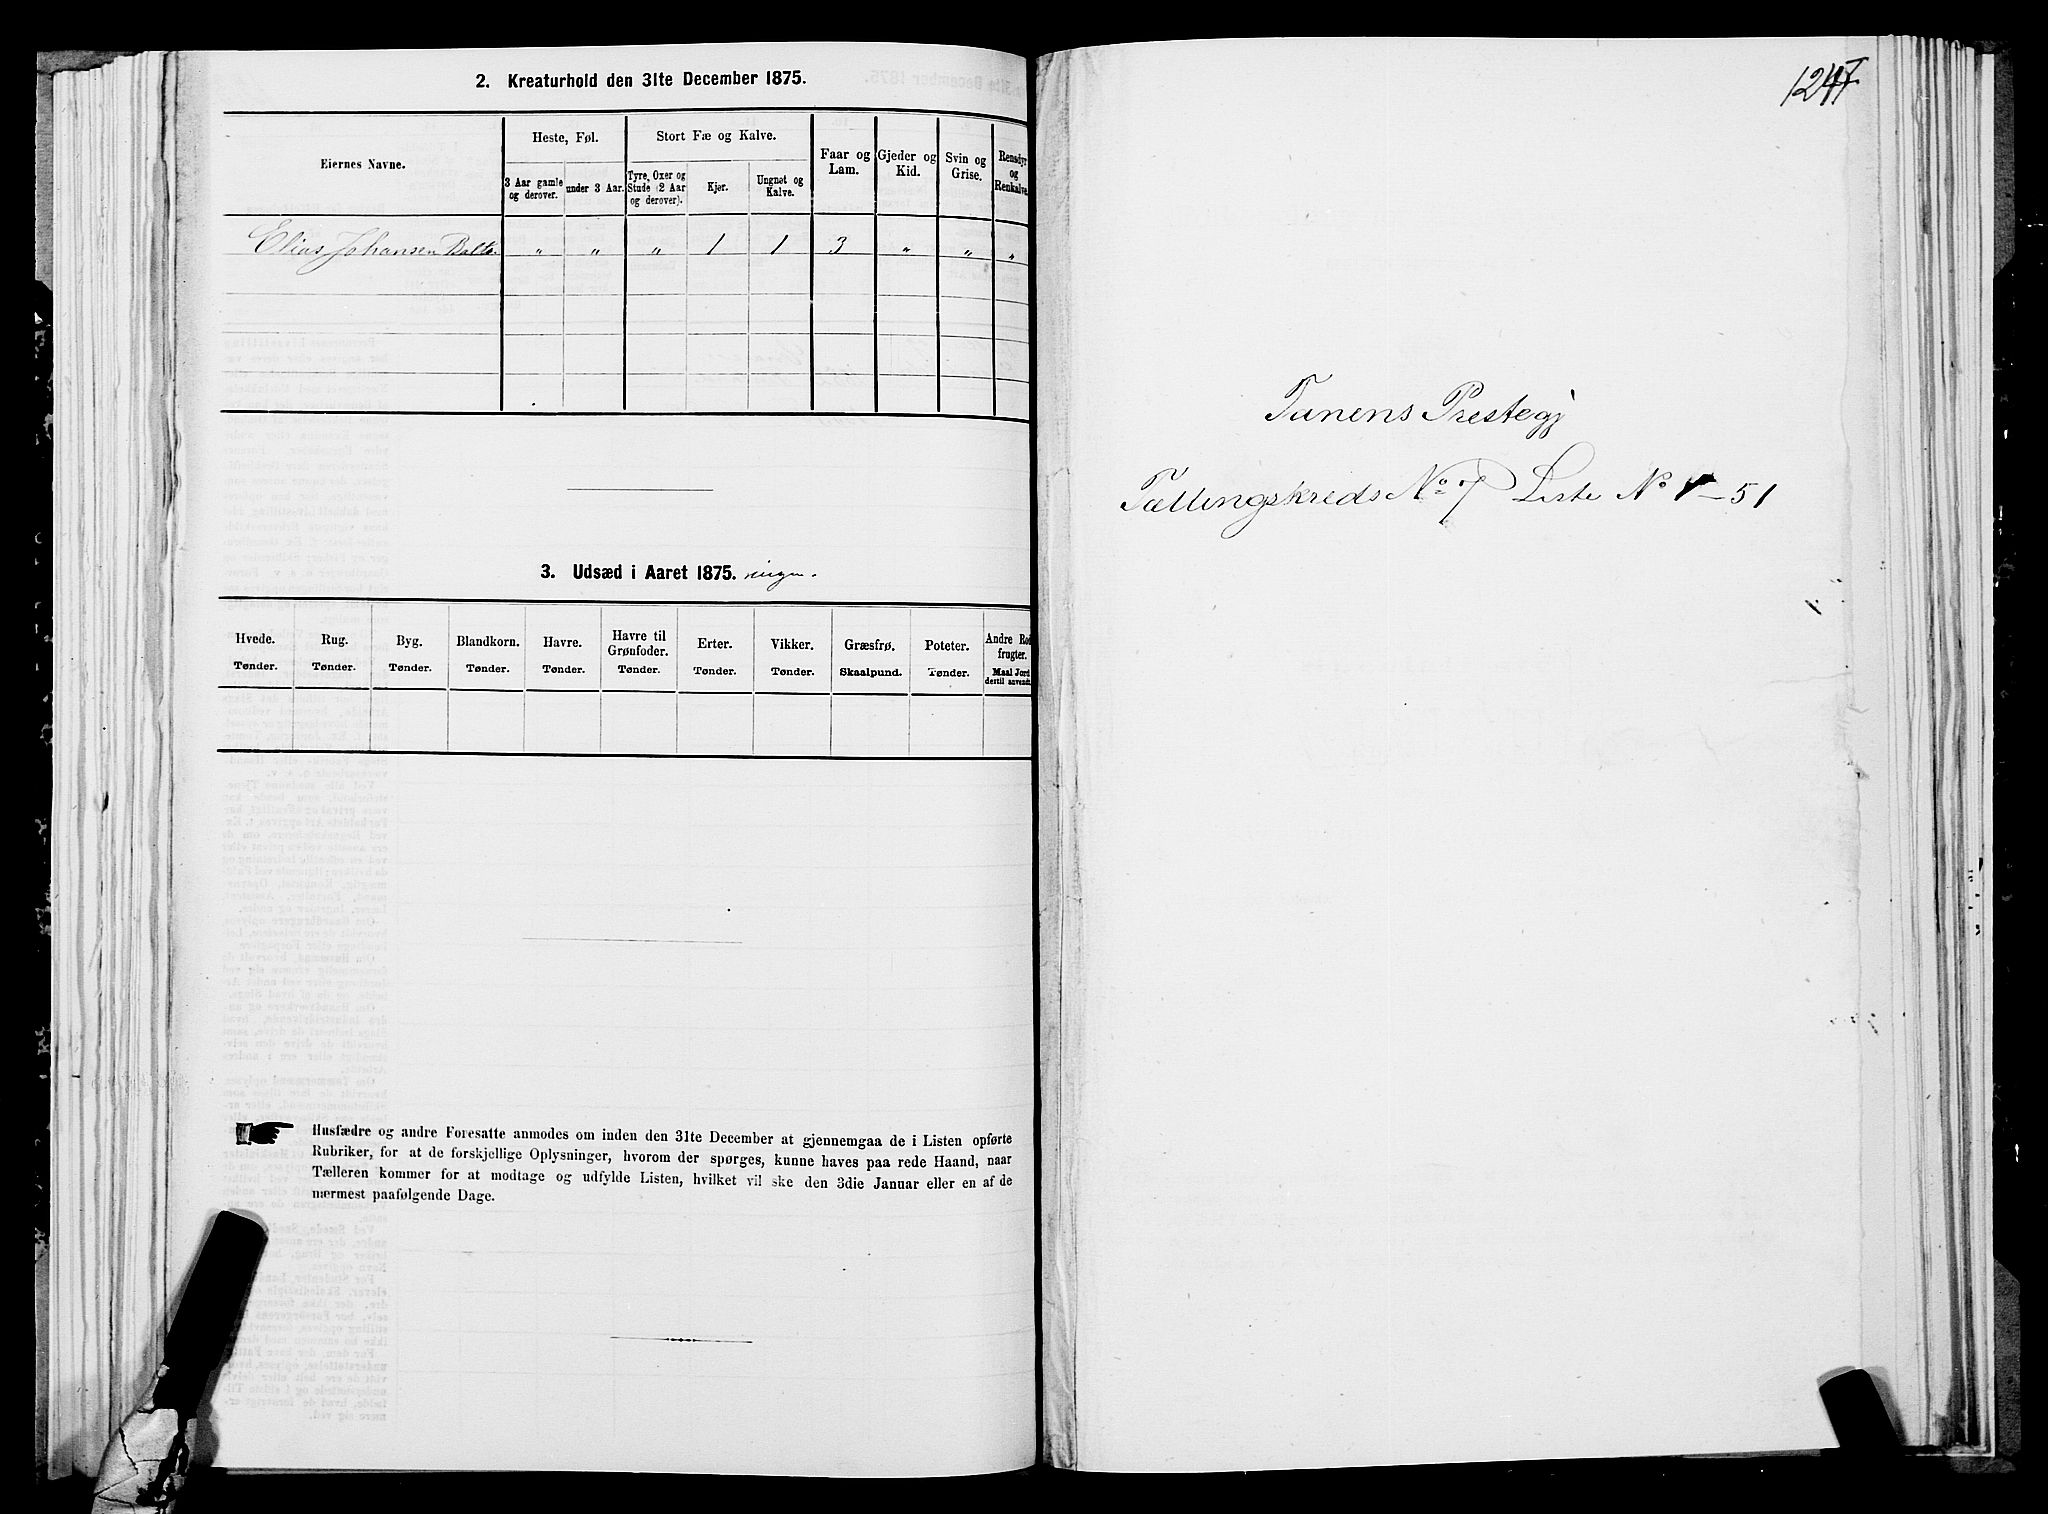 2. Kreaturhold den 31te December 1875.
Eiernes Navne.
Heste, Føl.
Stort Fæ og Kalve.
Faar og Lam.
Gjeder og Kid.
Svin og Grise.
Rensdyr og Renkalve.
3 Aar gamle og derover.
under 3 Aar.
Tyre, Oxer og Stude (2 Aar og derover).
Kjør.
Ungnøt og Kalve.
Elias Johansen Balto. " " " 1 1 3 " " "
3. Udsæd i Aaret 1875. ingen.
Hvede. Rug. Byg. Blandkorn. Havre. Havre til Grønfoder. Erter. Vikker. Græsfrø. Poteter. Andre Rodfrugter.
Tønder. Tønder. Tønder. Tønder. Tønder. Tønder. Tønder. Tønder. Skaalpund. Tønder. Maal Jord dertil anvendt.
Husfædre og andre Foresatte anmodes om inden den 31te December at gjennemgaa de i Listen opførte
Rubriker, for at de forskjellige Oplysninger, hvorom der spørges, kunne haves paa rede Haand, naar
Tælleren kommer for at modtage og udfylde Listen, hvilket vil ske den 3die Januar eller en af de
nærmest paafølgende Dage.
Tanens Prestegj
Tællingskreds No 7 Liste No 1-51